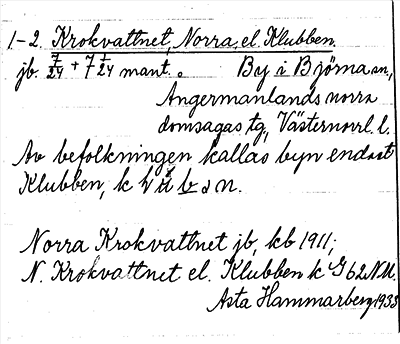 1-2. Krokvattnet, Norra, el. Klubben.
jb. 7/24 + 7 1/24 mant. By i Björna sn,
Ångermanlands norra
domsagas tg, Västernorrl. l.
Av befolkningen kallas byn endast
Klubben, k
Norra Krokvattnet jb, kb 1911;
N. Krokvattnet el. Klubben k G 62 NU.
Asta Hammarberg 1933